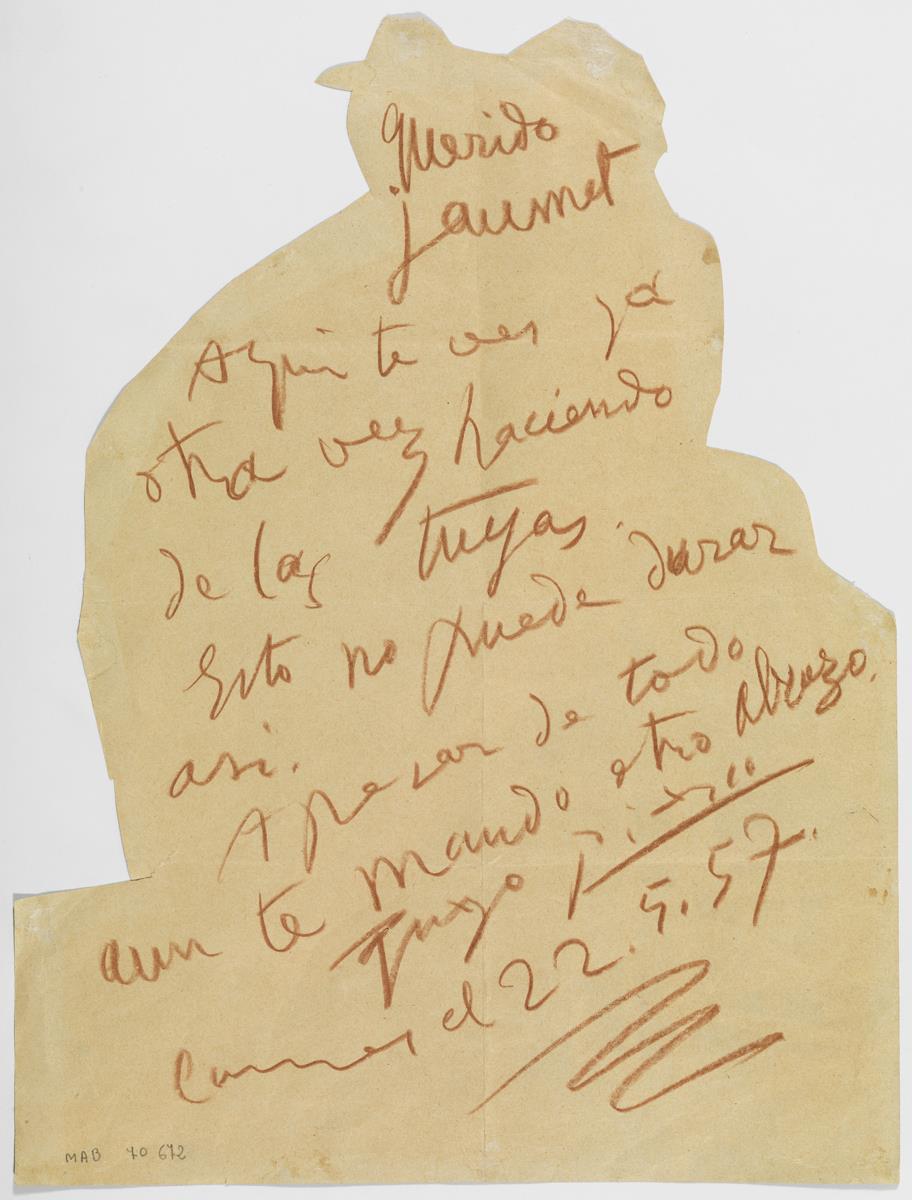 Querido
jaumet
Aqui te ves ya
otra vez haciendo
de las tuyas.
Esto no puede durar
asi.
Apesar de todo
aun te mando otro abrazo.
Tuyo picasso
Cannes el 22.5.57.
MAB 70 672